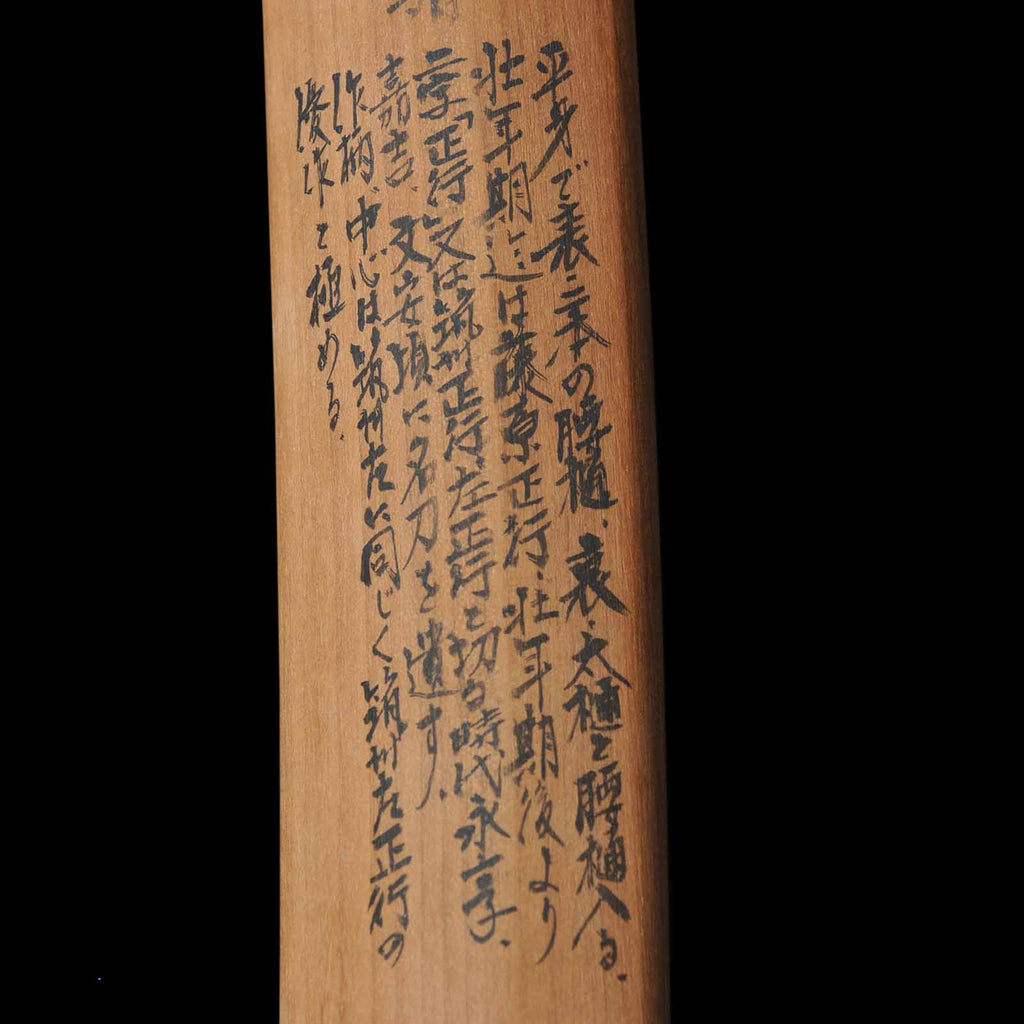 平身で表二本の腰樋、裏、太樋と腰樋入る。
壮年期迄は藤原正行、壮年期後より
二字「正行」又は筑州正行、左正行と切る時代永享、
嘉吉、文安頃に名刀を遺す。
作柄、中心は筑州左に同じく、筑州左正行の
優作と極める。